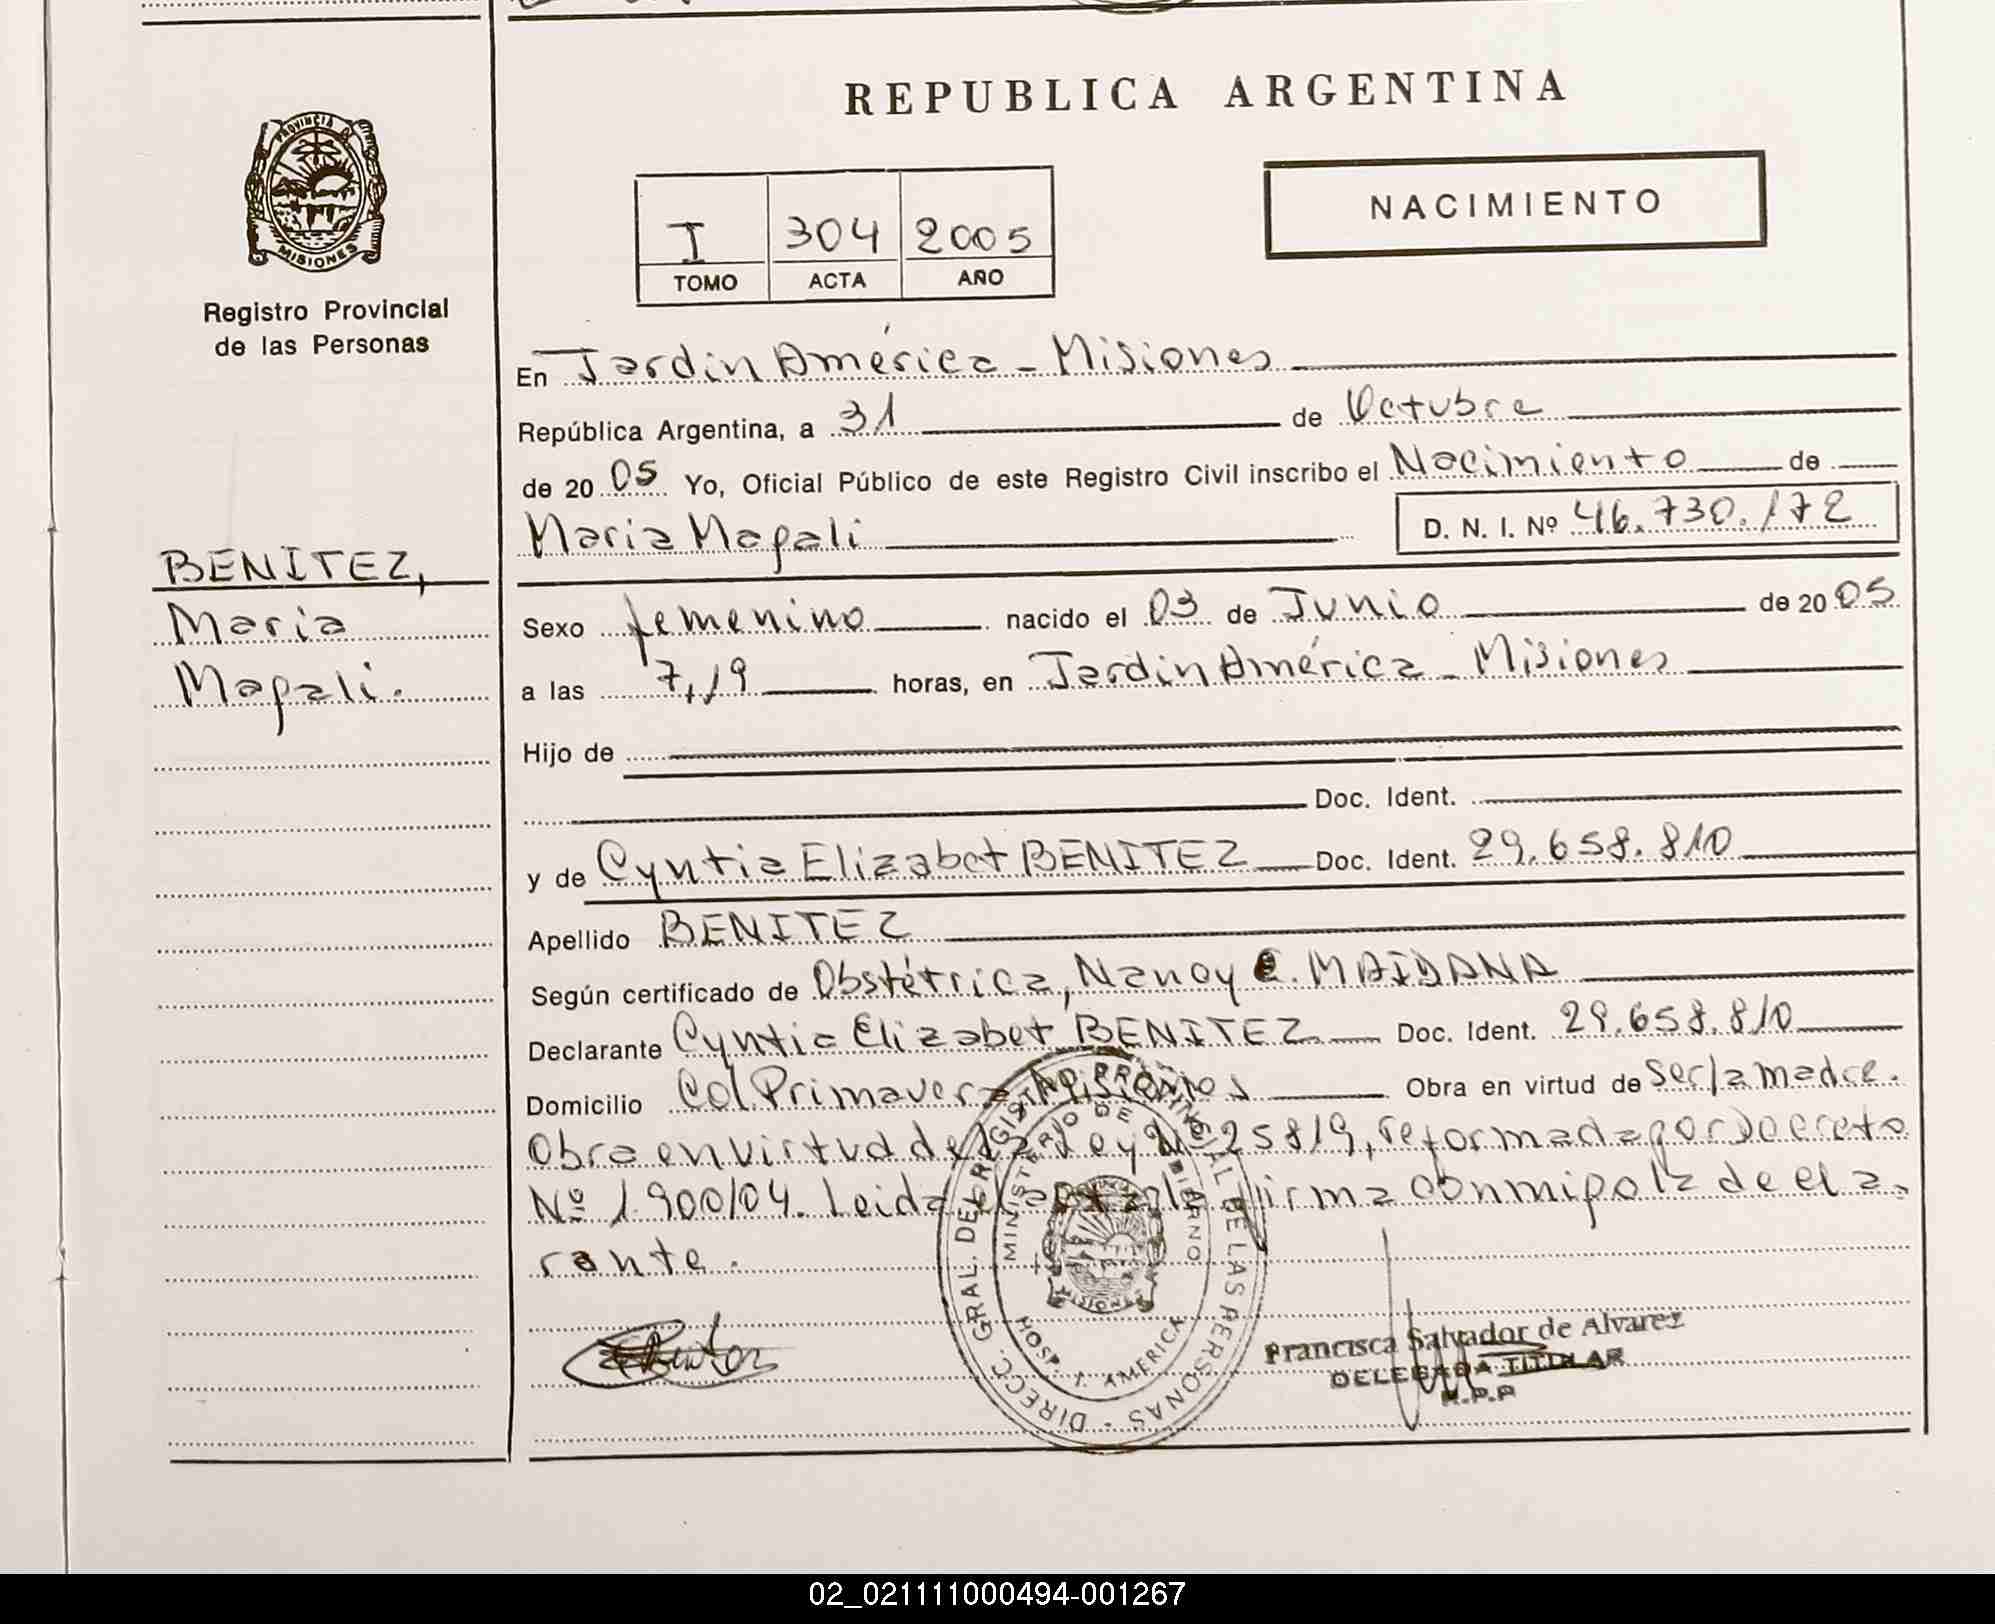 REPUBLICA ARGENTINA
PROVINCIA DE
MISIONES
Registro Provincial
de las Personas
I 304 2005
TOMO ACTA AÑO
NACIMIENTO
BENITEZ,
Maria
Magali.
En Jardin América - Misiones
República Argentina, a 31 de Octubre
de 2005 Yo, Oficial Público de este Registro Civil inscribo el Nacimiento de
Maria Magali D. N. I. Nº 46.730.172
Sexo femenino nacido el 03 de Junio de 2005
a las 7,19 horas, en Jardin América - Misiones
Hijo de
Doc. Ident.
y de Cyntia Elizabet BENITEZ Doc. Ident. 29.658.810
Apellido BENITEZ
Según certificado de Obstétrica, Nancy E. MAIDANA
Declarante Cyntia Elizabet BENITEZ Doc. Ident. 29.658.810
Domicilio Col Primavera Misiones Obra en virtud de ser la madre.
Obra en virtud de la Ley Nº 25819, reformada por Decreto
Nº 1.900/04. Leida el acta la firma conmigo la decla-
rante.
DIRECC. GRAL. DEL REGISTRO PROVINCIAL DE LAS PERSONAS
MINISTERIO DE GOBIERNO
MISIONES
HOSP. J. AMERICA
Francisca Salvador de Alvarez
DELEGADA TITULAR
R.P.P
02_021111000494-001267